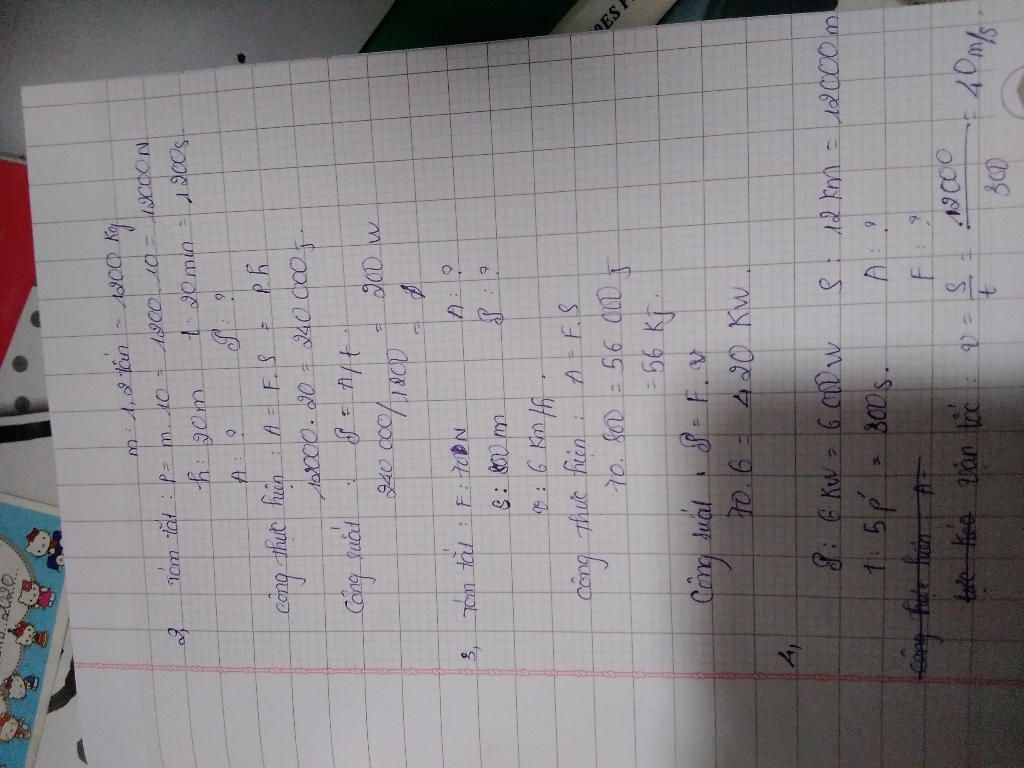 m = 1.2 tấn = 1200 kg
2 Tóm tắt : P = m.10 = 1200.10 = 12000N
h : 20m t : 20 min = 1200s.
A : ? P : ?
công thực hiện : A = F.S = P.h
12000.20 = 240.000 J.
Công suất : P = A/t.
240 000/1200 = 200 W
3, Tóm tắt : F : 70N A : ?
S : 800 m P : ?
v : 6 Km/h.
công thực hiện : A = F.S
70.800 = 56 000 J
= 56 KJ.
Công suất : P = F.v
70.6 = 420 KW.
4,
P : 6 KW = 6 000W S : 12 km = 12000m
t : 5 p' = 300s. A : ?
công thực hiện A = F : ?
vận tốc : v = S/t = 12000/300 = 40m/s